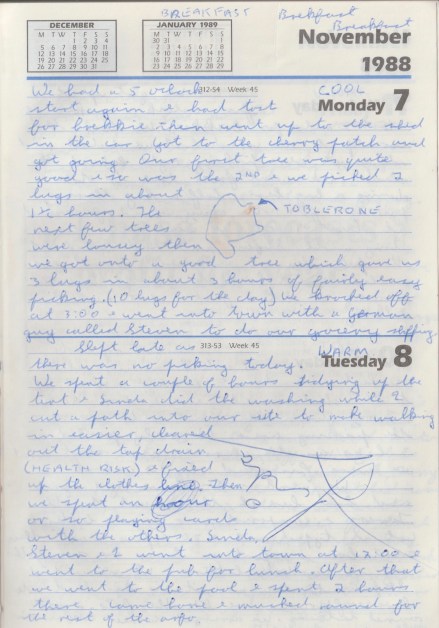 BREAKFAST Brekfust Breakfast
DECEMBER
M T W T F S S
1 2 3 4
5 6 7 8 9 10 11
12 13 14 15 16 17 18
19 20 21 22 23 24 25
26 27 28 29 30 31
JANUARY 1989
M T W T F S S
30 31 1
2 3 4 5 6 7 8
9 10 11 12 13 14 15
16 17 18 19 20 21 22
23 24 25 26 27 28 29
November
1988
312-54 Week 45
COOL
Monday 7
We had a 5 o'clock
start again & had tost
for brekkie then went up to the shed
in the car got to the cherry patch and
got going. Our first tree was quite
good & so was the 2ND & we picked 2
bags in about
1½ hours. The
TOBLERONE
next few trees
were lousey then
we got onto a good tree which gave us
3 bags in about 3 hours of fairly easy
picking. (10 bags for the day) we knocked off
at 3:00 & went into town with a German
guy called Steven to do our grocery shopping
313-53 Week 45
WARM
Tuesday 8
Slept late as
there was no picking today.
We spent a couple of hours tidying up the
tent & did the washing while I
cut a path into our site to make walking
in easier, cleared
out the tap drain
(HEALTH RISK) & fixed
up the clothes line. Then
we spent an hour
or so playing cards
with the others.
Steven & I went into town at 12:00 &
went to the pub for lunch. After that
we went to the pool & spent 2 hours
there came home & mucked around for
the rest of the arfo.